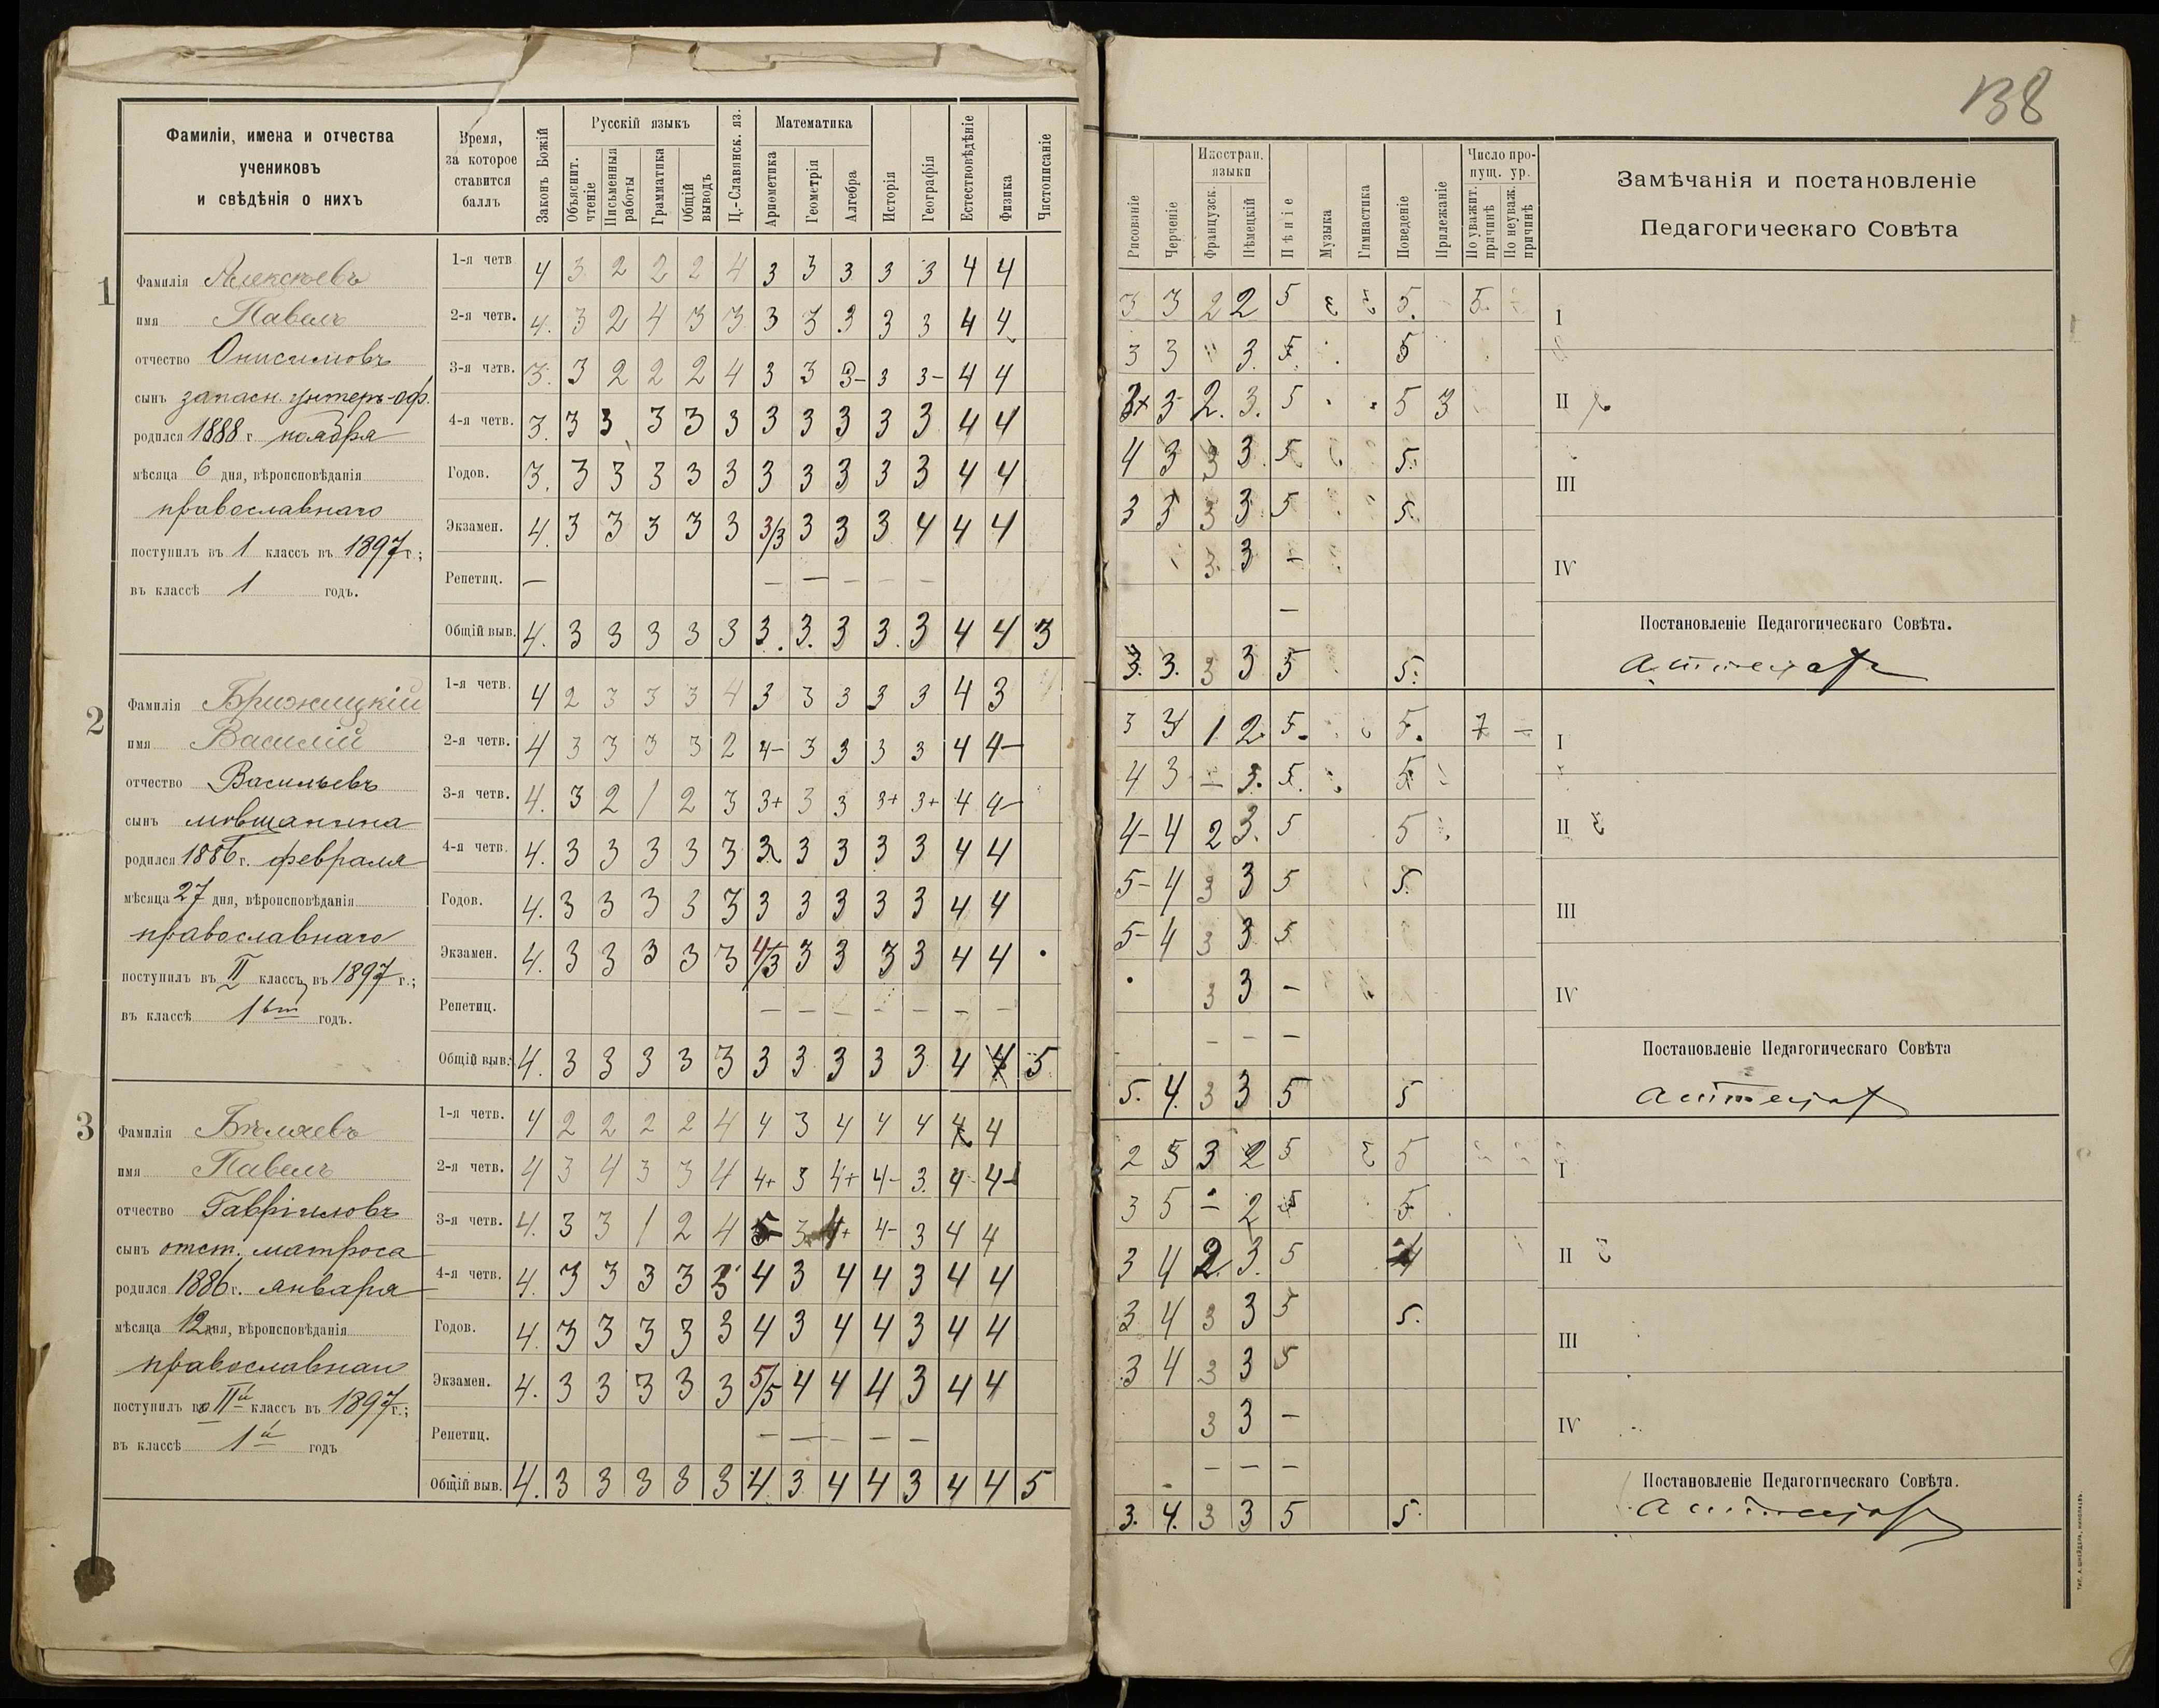 138
Фамиліи, имена и отчества
учениковъ
и свѣдѣнія о нихъ
Время,
за которое
ставится
баллъ
Законъ Божій
Русскій языкъ
Объяснит. чтеніе
Письменныя работы
Грамматика
Общій выводъ
Ц.-Славянск. яз.
Математика
Ариѳметика
Геометрія
Алгебра
Исторія
Географія
Естествовѣдѣніе
Физика
Чистописаніе
Рисованіе
Черченіе
Иностран. языки
Французск.
Нѣмецкій
Пѣніе
Музыка
Гимнастика
Поведеніе
Прилежаніе
Число пропущ. ур.
По уважит. причинѣ
По неуваж. причинѣ
Замѣчанія и постановленіе
Педагогическаго Совѣта
1
Фамилія Алексѣевъ
имя Павелъ
отчество Онисимовъ
сынъ запасн. унтеръ-оф.
родился 1888 г. ноября
мѣсяца 6 дня, вѣроисповѣданія
православнаго
поступилъ въ 1 классъ въ 1897 г.;
въ классѣ 1 годъ.
1-я четв. 4 3 2 2 2 4 3 3 3 3 3 4 4
2-я четв. 4. 3 2 4 3 3 3 3 3 3 3 4 4
3-я четв. 3. 3 2 2 2 4 3 3 3- 3 3- 4 4
4-я четв. 3. 3 3 3 3 3 3 3 3 3 3 4 4
Годов. 3. 3 3 3 3 3 3 3 3 3 3 4 4
Экзамен. 4. 3 3 3 3 3 3/3 3 3 3 4 4 4
Репетиц. — — — — — —
Общій выв. 4. 3 3 3 3 3 3. 3. 3 3. 3 4 4 3
I
II
III
IV
Постановленіе Педагогическаго Совѣта.
2
Фамилія Брижицкій
имя Василій
отчество Васильевъ
сынъ мѣщанина
родился 1886 г. февраля
мѣсяца 27 дня, вѣроисповѣданія
православнаго
поступилъ въ II классъ въ 1897 г.;
въ классѣ 1 годъ.
1-я четв. 4 2 3 3 3 4 3 3 3 3 3 4 3
2-я четв. 4 3 3 3 3 2 4- 3 3 3 3 4 4-
3-я четв. 4. 3 2 1 2 3 3+ 3 3 3+ 3+ 4 4-
4-я четв. 4. 3 3 3 3 3 3 3 3 3 3 4 4
Годов. 4. 3 3 3 3 3 3 3 3 3 3 4 4
Экзамен. 4. 3 3 3 3 3 4/3 3 3 3 3 4 4
Репетиц. — — — — — — —
Общій выв. 4. 3 3 3 3 3 3 3 3 3 3 4 4 5
I
II
III
IV
Постановленіе Педагогическаго Совѣта
3
Фамилія Бѣляевъ
имя Павелъ
отчество Гавріиловъ
сынъ отст. матроса
родился 1886 г. января
мѣсяца 12 дня, вѣроисповѣданія
православнаго
поступилъ во IIй классъ въ 1897 г.;
въ классѣ 1й годъ
1-я четв. 4 2 2 2 2 4 4 3 4 4 4 4 4
2-я четв. 4 3 4 3 3 4 4+ 3 4+ 4- 3. 4 4-
3-я четв. 4. 3 3 1 2 4 5 3 4+ 4- 3 4 4
4-я четв. 4. 3 3 3 3 3 4 3 4 4 3 4 4
Годов. 4. 3 3 3 3 3 4 3 4 4 3 4 4
Экзамен. 4. 3 3 3 3 3 5/5 4 4 4 3 4 4
Репетиц. — — — — —
Общій выв. 4. 3 3 3 3 3 4 3 4 4 3 4 4 5
I
II
III
IV
Постановленіе Педагогическаго Совѣта.
3 3 2 2 5 5. 5.
3 3 3. 5. 5
3+ 3- 2. 3. 5 5 3
4 3 3 3. 5. 5.
3 3 3 3. 5 5.
3. 3 —
—
3. 3. 3 3 5 5.
3 3 1 2. 5. 5. 7 —
4 3 — 3. 5. 5
4- 4 2 3. 5 5
5- 4 3 3 5 5.
5- 4 3 3 5
3 3 —
— — —
5. 4. 3 3 5 5
2 5 3 2 5 5
3 5 — 2 5 5
3 4 2. 3. 5 4
3 4 3 3 5 5.
3 4 3 3 5
3 3 —
— — —
3. 4. 3 3 5 5.
ТИП. А. ШНЕЙДЕРА, НИКОЛАЕВЪ.